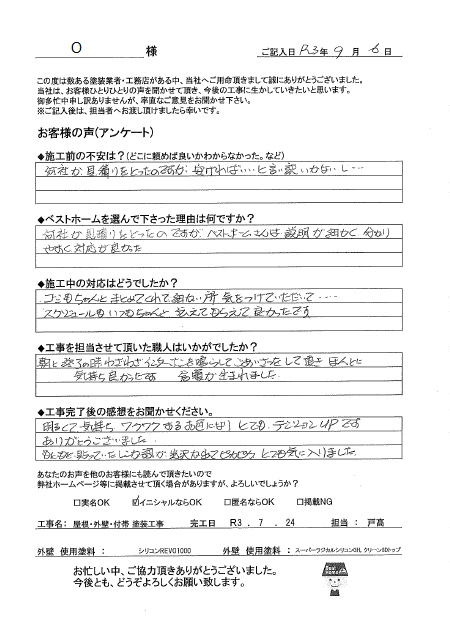 O 様 ご記入日 R3年 9月 6日
この度は数ある塗装業者・工務店がある中、当社へご用命頂きまして誠にありがとうございました。
当社は、お客様ひとりひとりの声を聞かせて頂き、今後の工事に生かしていきたいと思います。
御多忙中申し訳ありませんが、率直なご意見をお聞かせ下さい。
※ご記入後は、担当者へお渡し頂けましたら幸いです。
お客様の声（アンケート）
◆施工前の不安は？（どこに頼めば良いかわからなかった。など）
何社か見積りをとったのですが 安ければいい と言う訳
◆ベストホームを選んで下さった理由は何ですか？
何社か見積りをとったのですが、ベストホームさんは説明が細かく分かり
やすく対応が良かった
◆施工中の対応はどうでしたか？
ゴミもちゃんとまとめてくれて細かい所 気をつけていただいて・・・・
スケジュールもいつもちゃんと 教えてもらえて良かったです
◆工事を担当させて頂いた職人はいかがでしたか？
朝と終了の時わざわざインターホンを鳴らしてごあいさつをして頂き ほんとに
気持ち良かったです 笑顔が生まれました
◆工事完了後の感想をお聞かせください。
明るくて気持ち ワクワクするお色になり とても テンションUPです
ありがとうございました
とても気に入りました
あなたのお声を他のお客様にも読んで頂きたいので
弊社ホームページ等に掲載させて頂く場合がありますが、よろしいでしょうか？
□実名OK ☑イニシャルならOK □匿名ならOK □掲載NG
工事名： 屋根・外壁・付帯 塗装工事 完工日 R3．7．24 担当： 戸高
外壁 使用塗料： シリコンREVO1000 外壁 使用塗料： スーパーラジカルシリコンGH、クリーンSDトップ
お忙しい中、ご協力頂きありがとうございました。
今後とも、どうぞよろしくお願い致します。